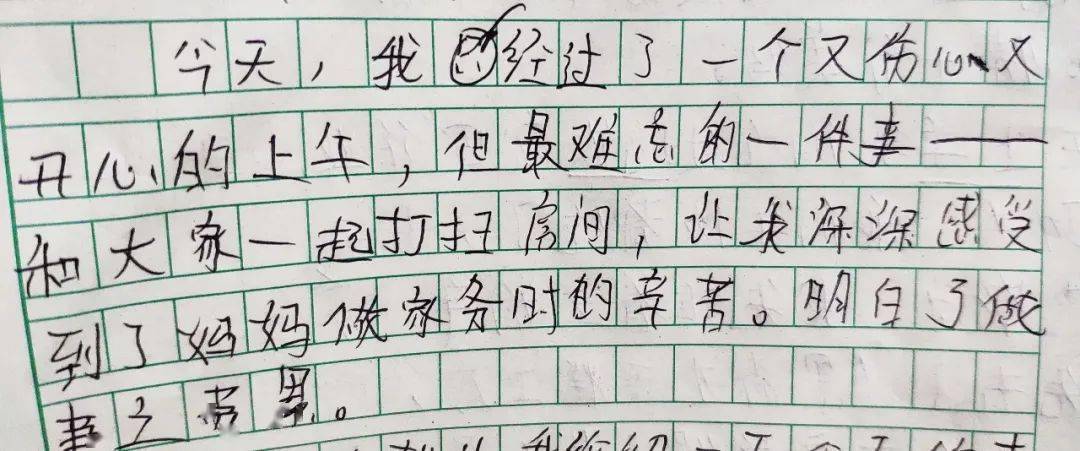 今天，我经过了一个又伤心又
开心的上午，但最难忘的一件事——
和大家一起打扫房间，让我深深感受
到了妈妈做家务时的辛苦。明白了做
事之劳累。